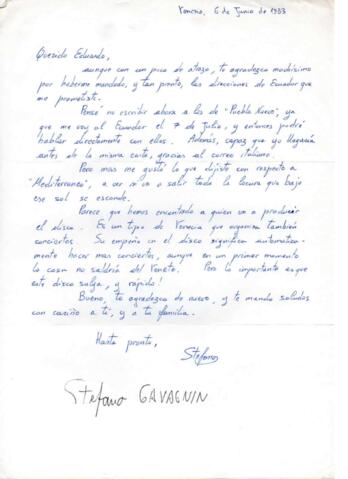 6 de Junio de 1983
Querido Eduardo,
aunque con un pico de atraso, te agradezco muchísimo
por haberme mandado, y tan pronto, las direcciones de Ecuador que
me prometiste.
Pensé no escribir ahora a los de "Pueblo Nuevo", ya
que me voy al Ecuador el 7 de Julio, y entonces podré
hablar directamente con ellos. Además, capaz que yo llegaría
antes de la misma carta, gracias al correo italiano.
Pero mas me gustó lo que dijiste con respecto a
"Mediterraneo", a ver si va a salir toda la locura que bajo
ese sol se esconde.
Parece que hemos encontrado a quien va a producir
el disco. Es un tipo de Venecia que organiza también
conciertos. Su empeño en el disco significa automatica-
mente hacer mas conciertos, aunque en un primer momento
la cosa no saldría del Veneto. Pero lo importante es que
este disco salga, y rápido!
Bueno, te agradezco de nuevo, y te mando saludos
con cariño a ti, y a tu familia.
Hasta pronto,
Stefano
Stefano GAVAGNIN